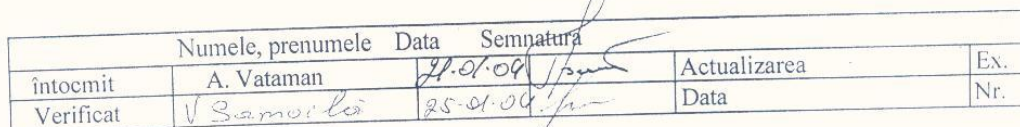 Numele, prenumele Data Semnatura
întocmit A. Vataman 21.01.04 Actualizarea Ex.
Verificat V Samoilă 25.01.04 Data Nr.